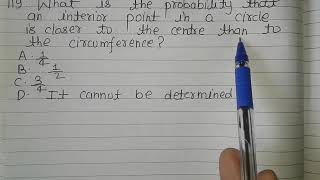 119 What is the probability that
an interior point in a circle
is closer to the centre than to
the circumference?
A. 1/4
B. 1/2
C. 3/4
D. It cannot be determined